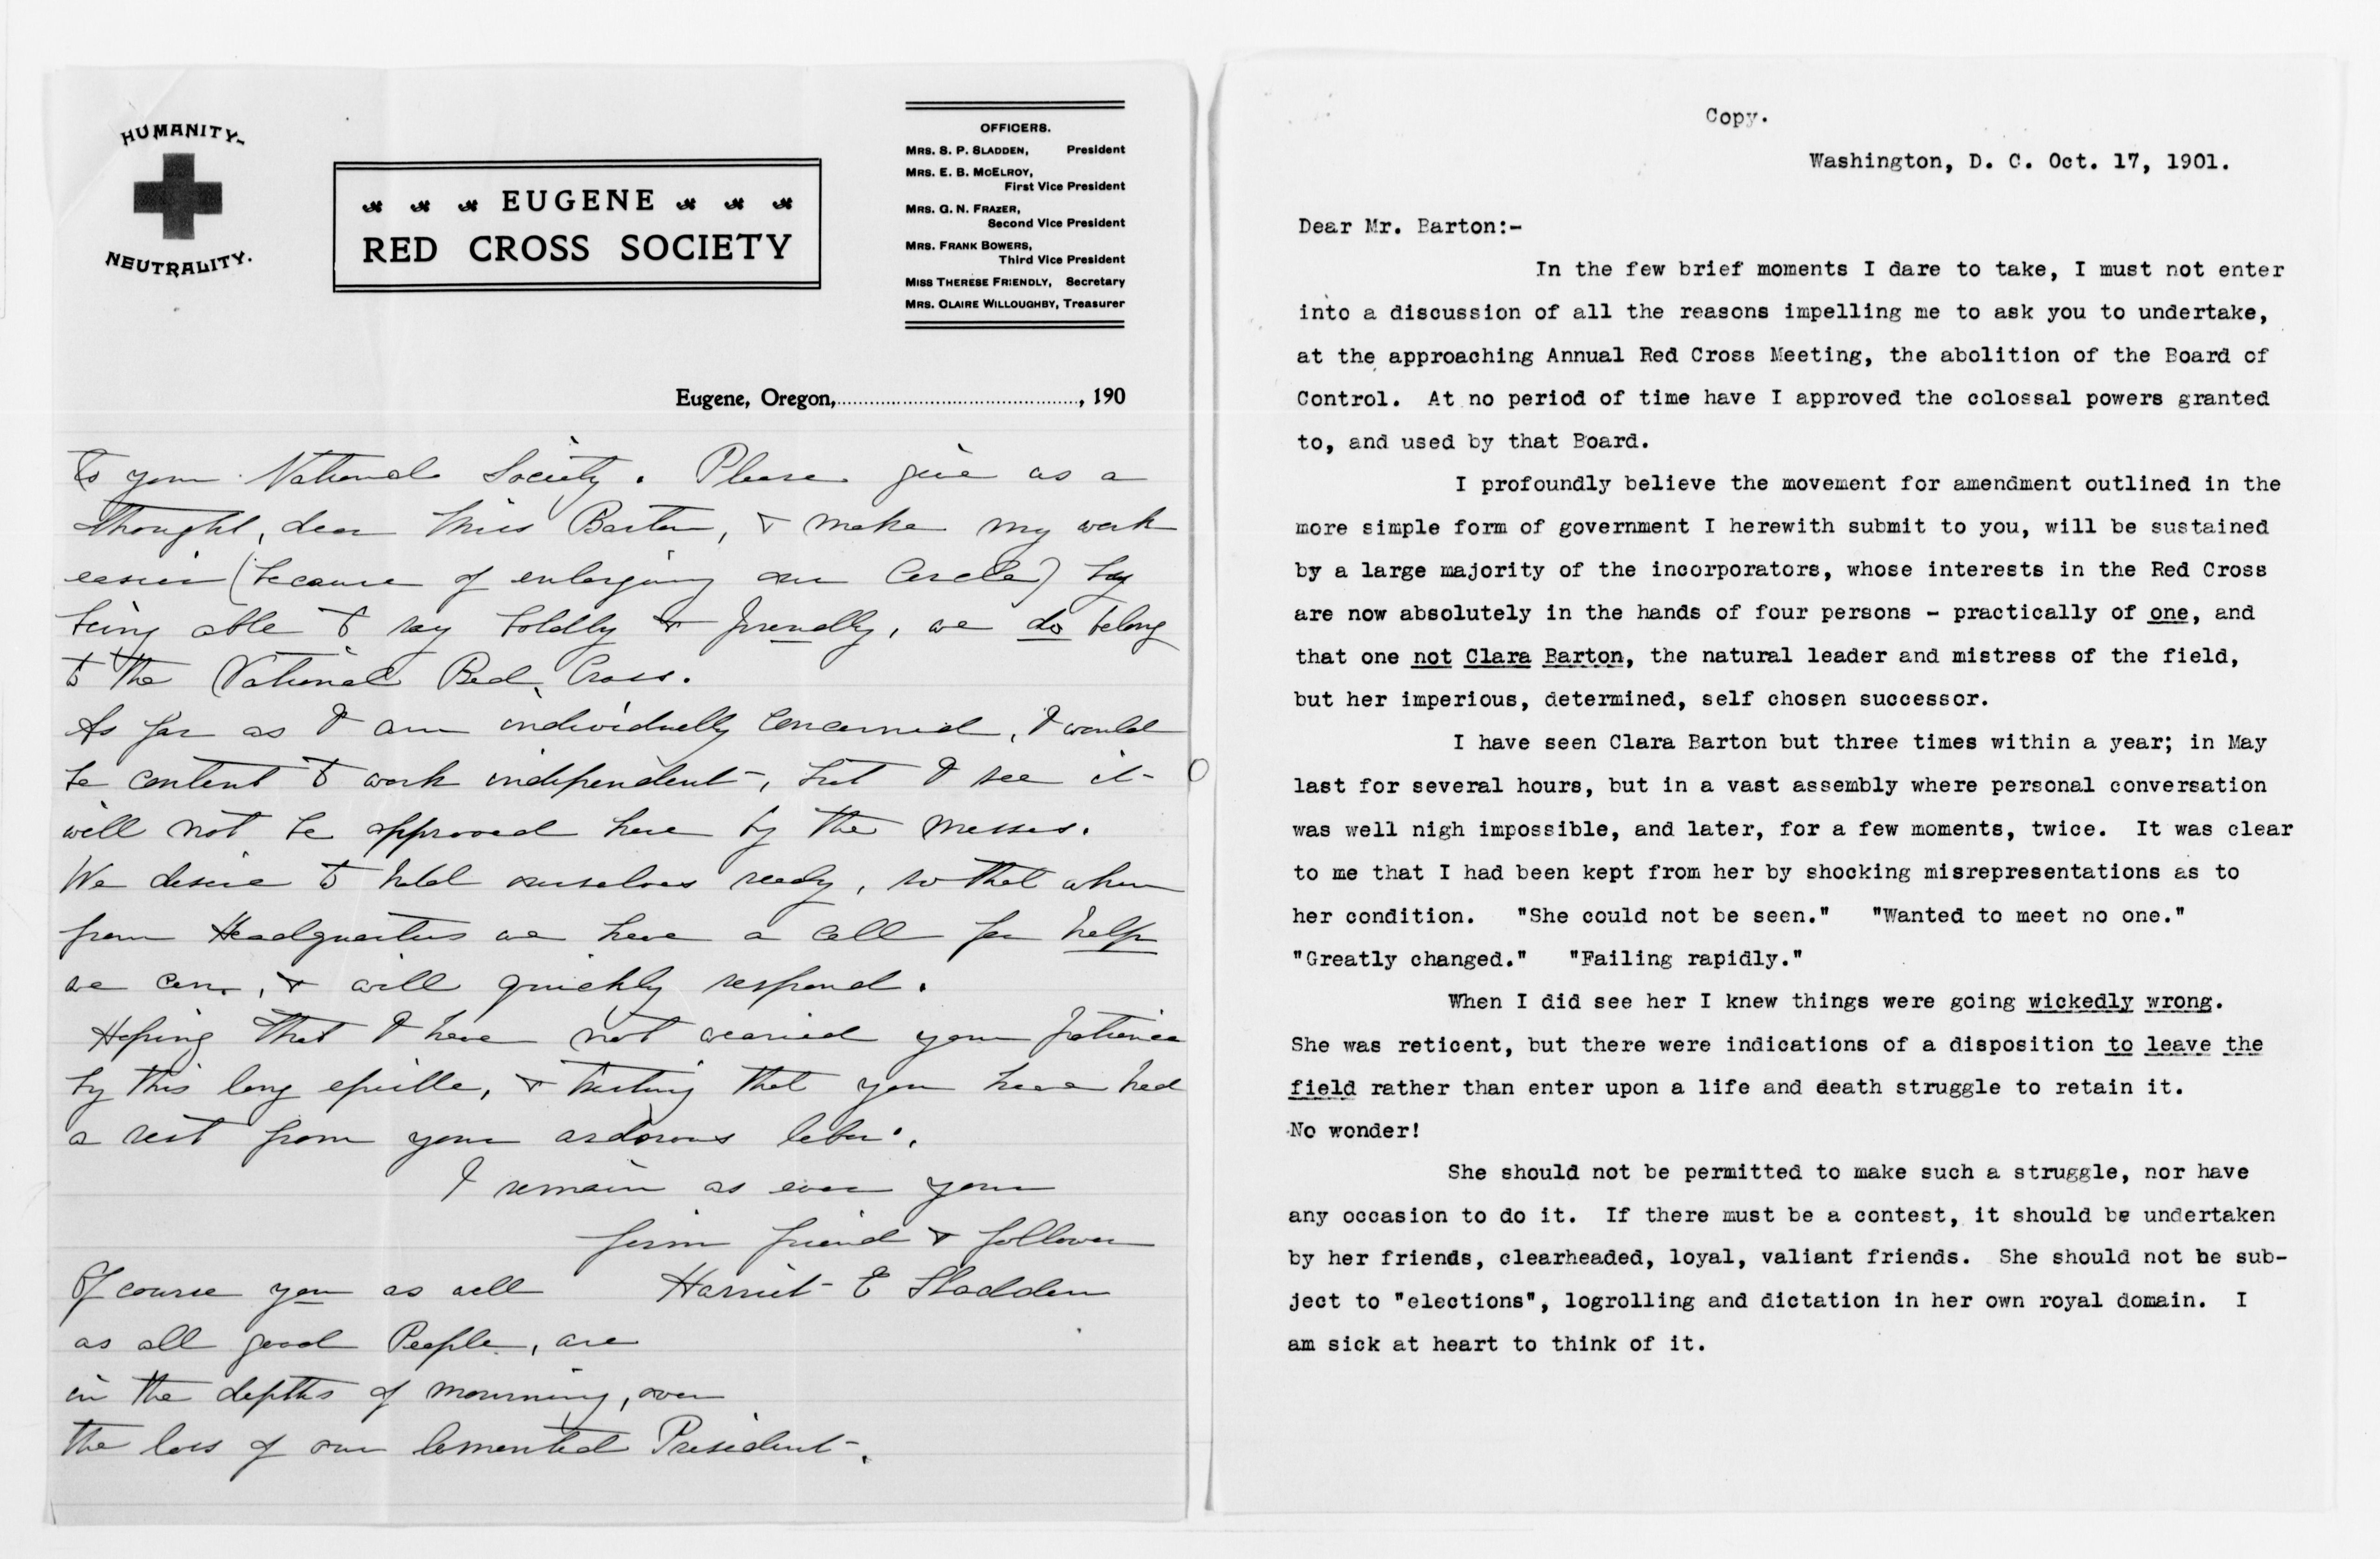 HUMANITY
NEUTRALITY.
EUGENE
RED CROSS SOCIETY
OFFICERS.
MRS. S. P. SLADDEN, President
MRS. E. B. MCELROY,
First Vice President
MRS. G. N. FRAZER,
Second Vice President
MRS. FRANK BOWERS,
Third Vice President
MISS THERESE FRIENDLY, Secretary
MRS. CLAIRE WILLOUGHBY, Treasurer
Eugene, Oregon, , 190
to your National Society. Please give us a
thought, dear Miss Barton, & make my work
easier (because of enlarging our Circle) by
being able to say boldly & proudly, we do belong
to the National Red Cross.
As far as I am individually concerned, I would
be content to work independent, but I see it
will not be approved here by the masses.
We desire to hold ourselves ready, so that when
from Headquarters we have a call for help
we can, & will quickly respond.
Hoping that I have not wearied your patience
by this long epistle, & trusting that you have had
a rest from your ardorous labor,
I remain as ever your
firm friend & follower
Harriet E Sladden
Of course you as well
as all good People, are
in the depths of mourning, over
the loss of our lamented President.
Copy.
Washington, D. C. Oct. 17, 1901.
Dear Mr. Barton:-
In the few brief moments I dare to take, I must not enter
into a discussion of all the reasons impelling me to ask you to undertake,
at the approaching Annual Red Cross Meeting, the abolition of the Board of
Control. At no period of time have I approved the colossal powers granted
to, and used by that Board.
I profoundly believe the movement for amendment outlined in the
more simple form of government I herewith submit to you, will be sustained
by a large majority of the incorporators, whose interests in the Red Cross
are now absolutely in the hands of four persons - practically of one, and
that one not Clara Barton, the natural leader and mistress of the field,
but her imperious, determined, self chosen successor.
I have seen Clara Barton but three times within a year; in May
last for several hours, but in a vast assembly where personal conversation
was well nigh impossible, and later, for a few moments, twice. It was clear
to me that I had been kept from her by shocking misrepresentations as to
her condition. "She could not be seen." "Wanted to meet no one."
"Greatly changed." "Failing rapidly."
When I did see her I knew things were going wickedly wrong.
She was reticent, but there were indications of a disposition to leave the
field rather than enter upon a life and death struggle to retain it.
No wonder!
She should not be permitted to make such a struggle, nor have
any occasion to do it. If there must be a contest, it should be undertaken
by her friends, clearheaded, loyal, valiant friends. She should not be sub-
ject to "elections", logrolling and dictation in her own royal domain. I
am sick at heart to think of it.